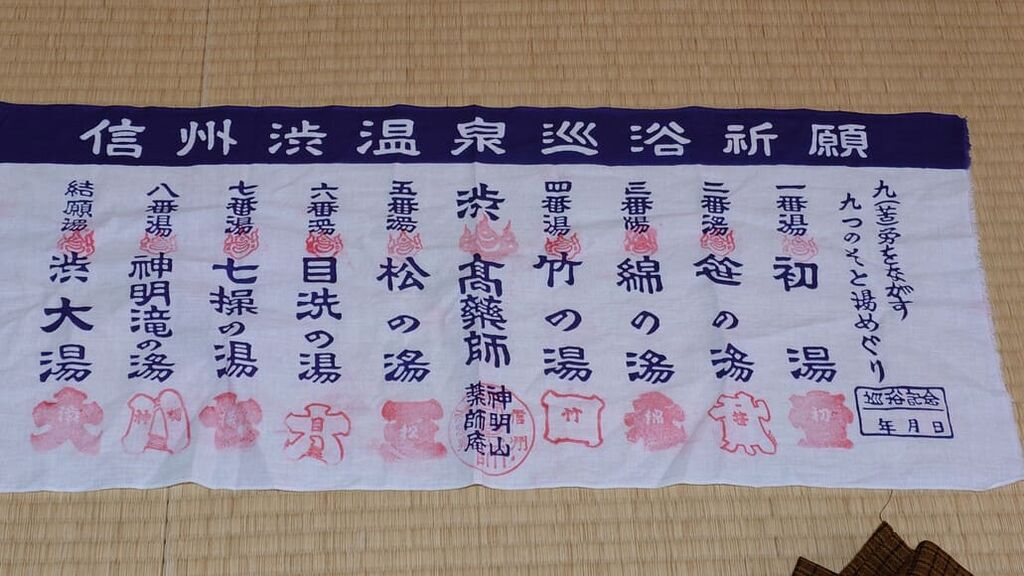 信州渋温泉巡浴祈願
九(苦)労をながす
九つのそと湯めぐり
巡浴記念
年月日
一番湯
初湯
初
二番湯
笹の湯
笹
三番湯
綿の湯
綿
四番湯
竹の湯
竹
渋
高薬師
神明山
薬師庵
五番湯
松の湯
松
六番湯
目洗の湯
目
七番湯
七操の湯
八番湯
神明滝の湯
神明
結願湯
渋大湯